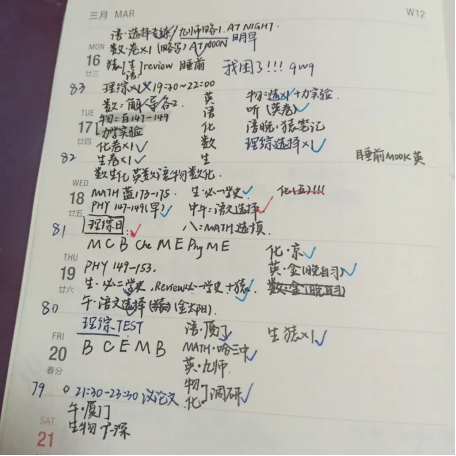 三月 MAR W12
语·选择专练/九师略1. AT NIGHT.
MON 数·卷x1(略号) AT NOON 明早
16 猿[生]review 睡前 我困了!!! qwq
廿三 语
83 理综x1 19:30~22:00
数: 英 物:选x1+力实验
TUE 物=白147-149 语 听(英卷)
17 力学实验 化 语晚·猿笔记
廿四 化卷x1 数 理综选择x1
82 生卷x1 生 睡前MOOK英
数生化英数语物数化.
WED MATH 蓝173-175. 生·必一学史. 化(五)!!!
18 PHY 147-149(早) 中午:语文选择
廿五 理综日 八:MATH选填
81 M C B Che M E Phy M E
THU 化·京
19 PHY 149-153. 英·金(晚自习)
廿六 生·必二学史, Review必一学史+猿 数·金(晚自习)
80 午·语文选择 (金太阳).
理综TEST 语·厦门 生猿x1
FRI B C E M B MATH·哈三中
20 英·九师
春分 物 调研
79 21:30-23:30 议论文 化
午·厦门
SAT 生物
21